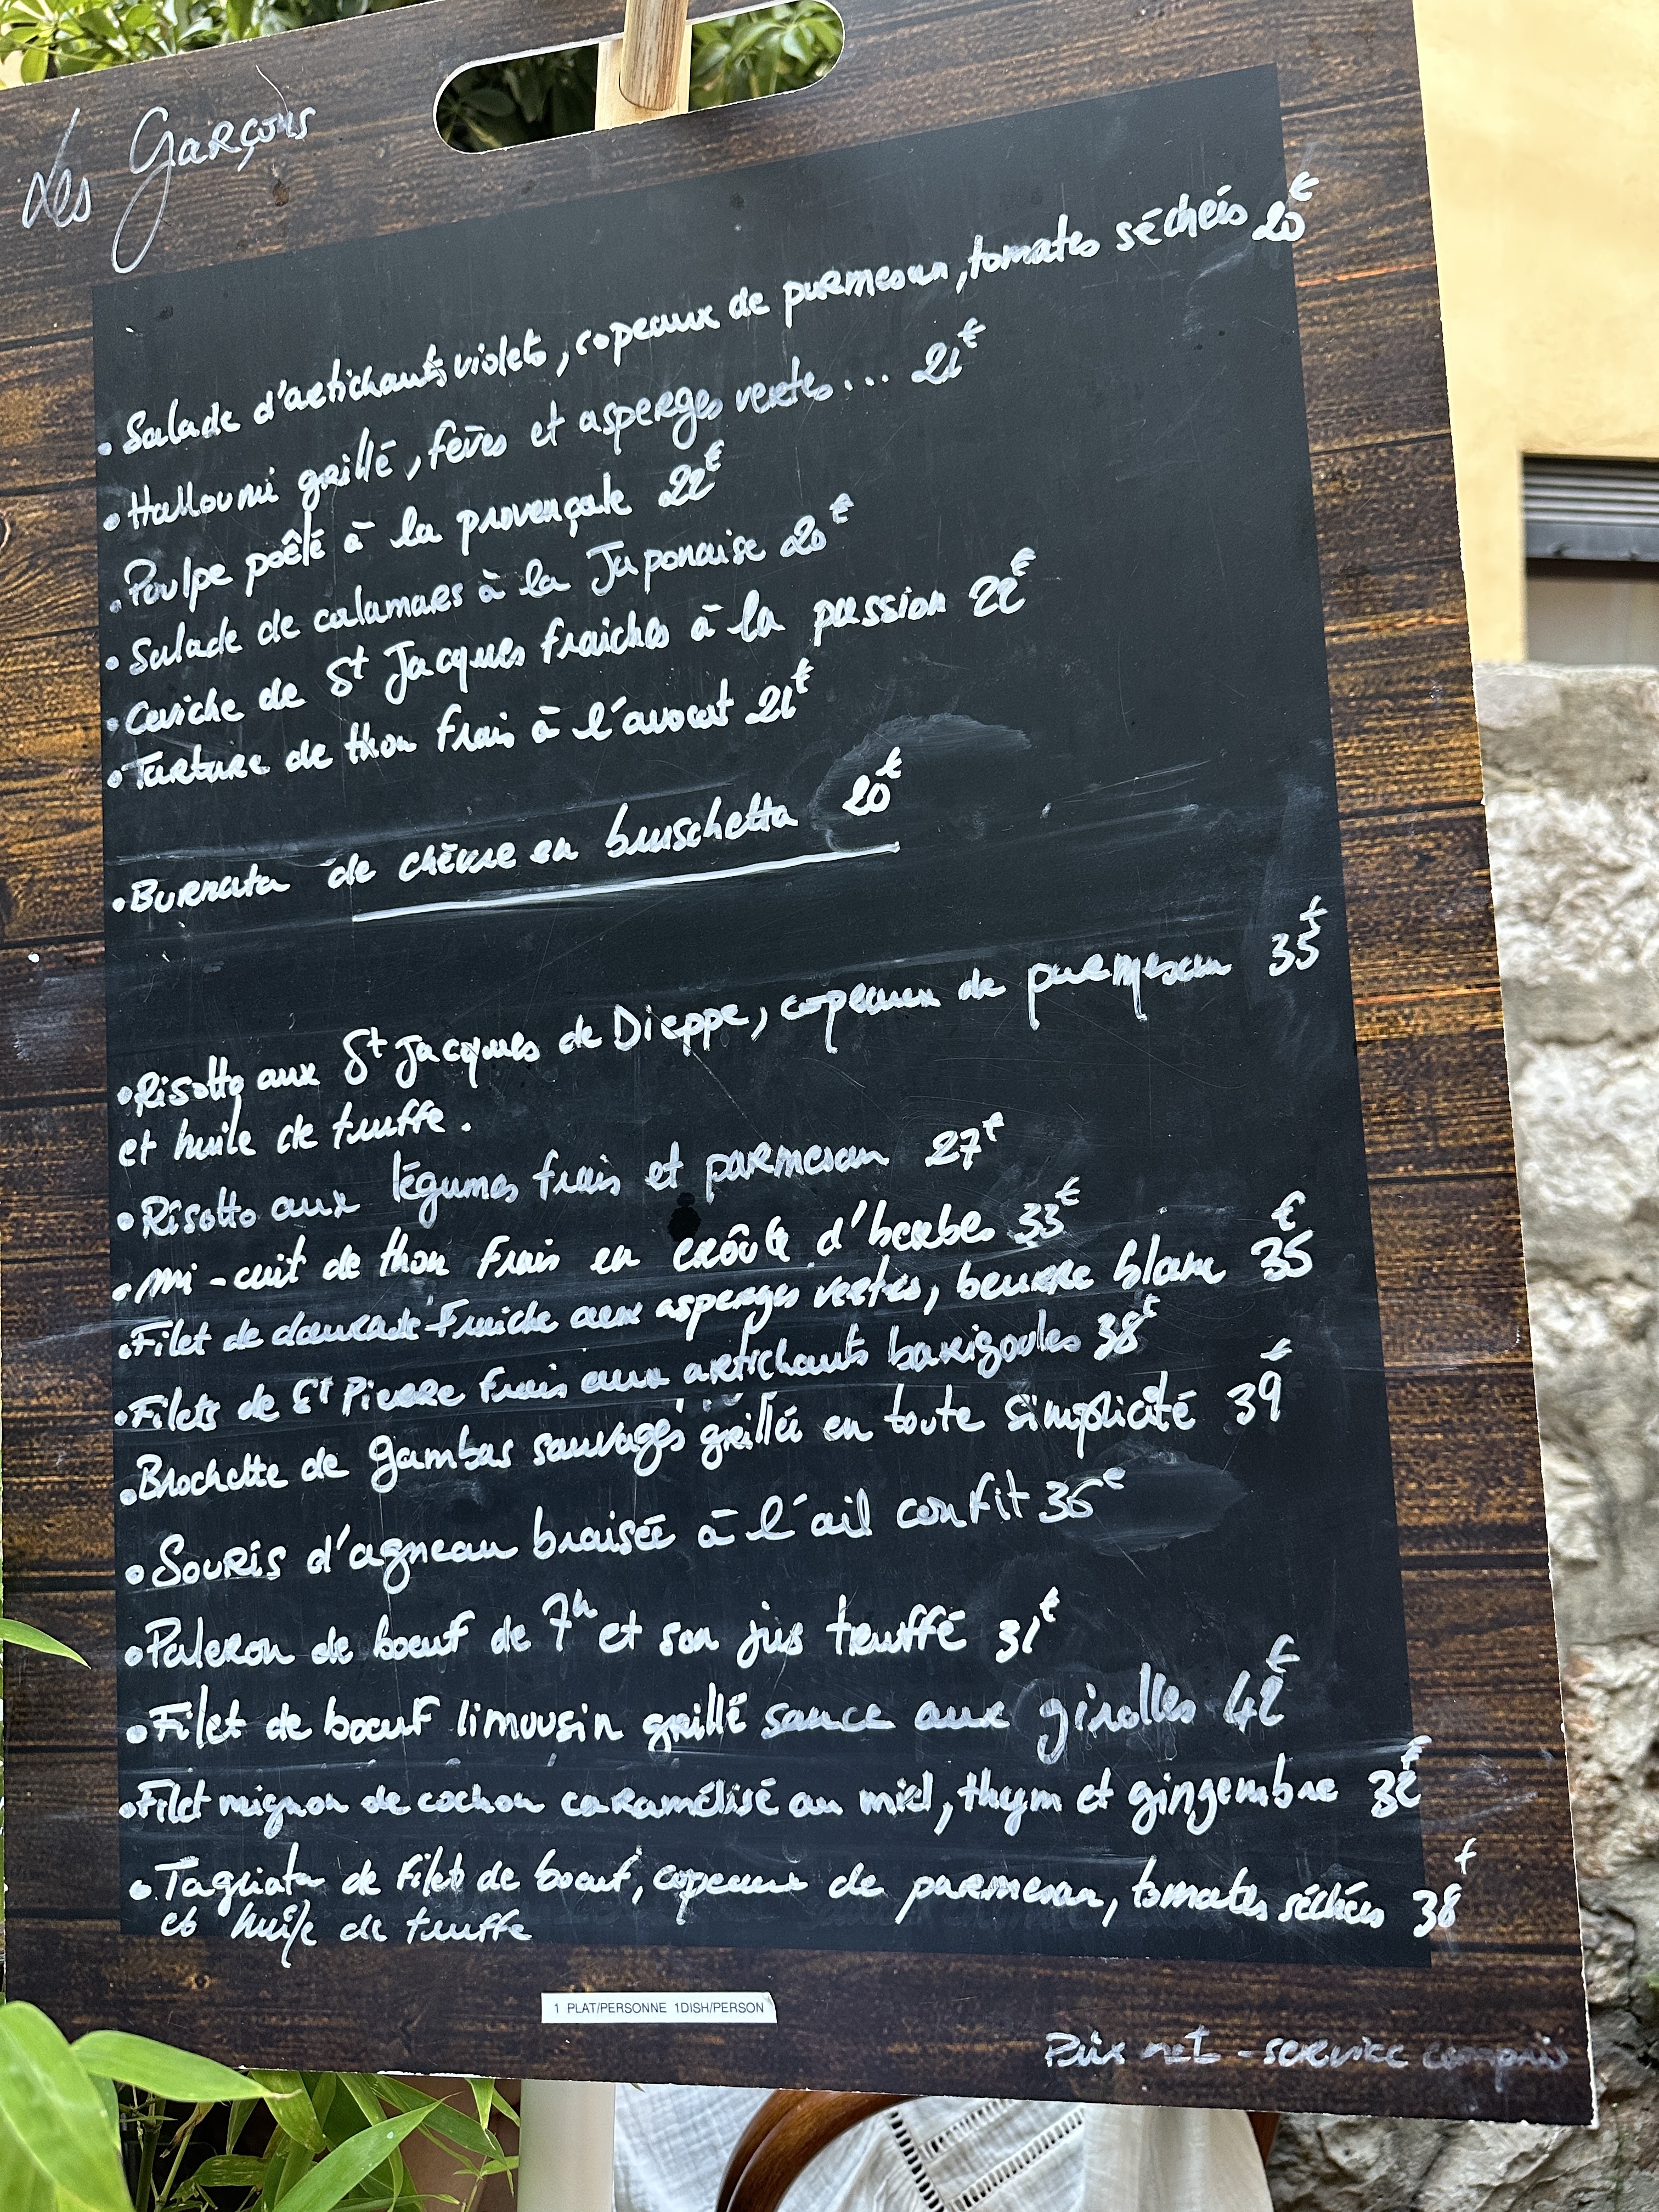 Les Garçons
• Salade d'artichauts violets, copeaux de parmesan, tomates séchées 20€
• Halloumi grillé, fèves et asperges vertes... 21€
• Poulpe poêlé à la provençale 22€
• Salade de calamars à la Japonaise 20€
• Ceviche de St Jacques fraiches à la passion 22€
• Tartare de thon frais à l'avocat 21€
• Burrata de chèvre en bruschetta 20€
• Risotto aux St Jacques de Dieppe, copeaux de parmesan 35€
et huile de truffe.
• Risotto aux légumes frais et parmesan 27€
• Mi-cuit de thon frais en croûte d'herbes 33€
• Filet de daurade fraiche aux asperges vertes, beurre blanc 35€
• Filets de St Pierre frais aux artichauts barigoules 38€
• Brochette de gambas sauvages grillée en toute simplicité 39€
• Souris d'agneau braisée à l'ail confit 36€
• Paleron de boeuf de 7h et son jus truffé 31€
• Filet de boeuf limousin grillé sauce aux girolles 42€
• Filet mignon de cochon caramélisé au miel, thym et gingembre 32€
• Tagliata de filet de boeuf, copeaux de parmesan, tomates séchées 38€
et huile de truffe
1 PLAT/PERSONNE 1DISH/PERSON
Prix net - service compris